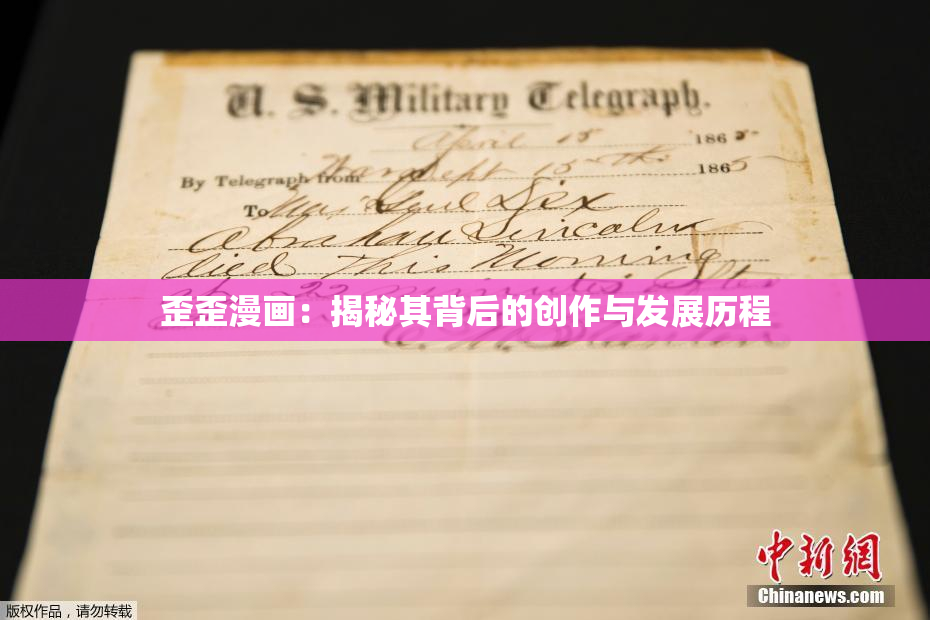 U. S. Military Telegraph.
April 15 1865
By Telegraph from War Dept 15th 1865
To Maj Genl Dix
Abraham Lincoln
died This Morning
at 22 minutes after
歪歪漫画：揭秘其背后的创作与发展历程
E. M. Stanton
中新网
Chinanews.com
版权作品，请勿转载